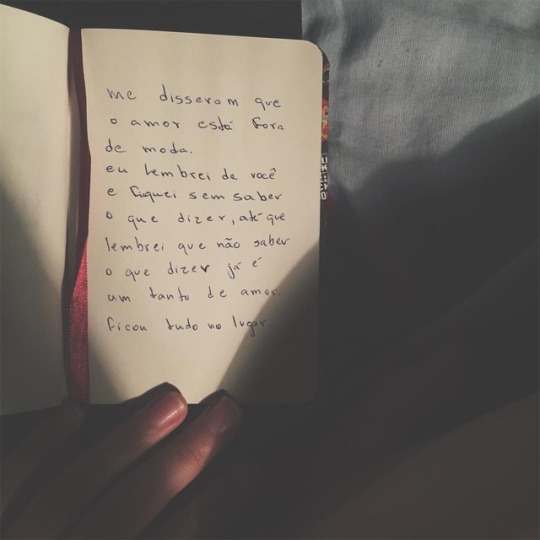 me disseram que
o amor está fora
de moda.
eu lembrei de você
e fiquei sem saber
o que dizer, até que
lembrei que não saber
o que dizer já é
um tanto de amor.
ficou tudo no lugar